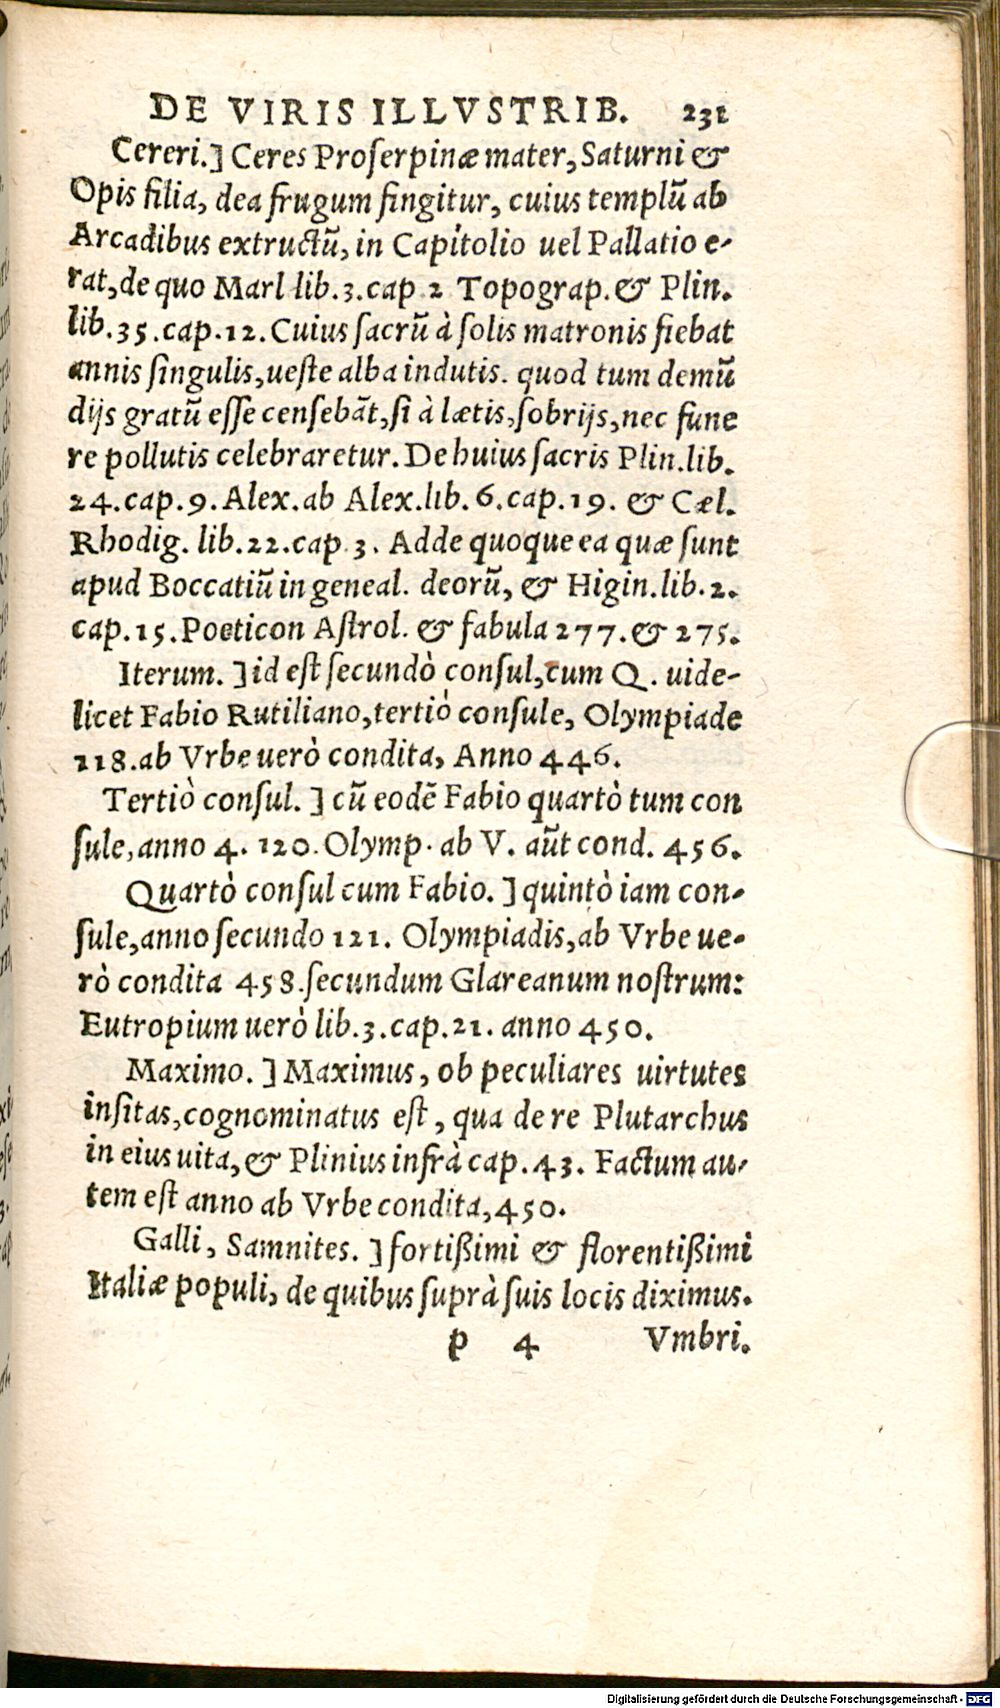 DE VIRIS ILLVSTRIB. 231
Cereri.] Ceres Proserpinæ mater, Saturni &
Opis filia, dea frugum fingitur, cuius templū ab
Arcadibus extructū, in Capitolio uel Pallatio e-
rat, de quo Marl lib.3.cap 2 Topograp. & Plin.
lib.35.cap.12. Cuius sacrū à solis matronis fiebat
annis singulis, ueste alba indutis. quod tum demū
dijs gratū esse censebāt, si à lætis, sobrijs, nec fune
re pollutis celebraretur. De huius sacris Plin.lib.
24.cap.9. Alex. ab Alex.lib.6.cap.19. & Cæl.
Rhodig. lib.22.cap 3. Adde quoque ea quæ sunt
apud Boccatiū in geneal. deorū, & Higin.lib.2.
cap.15.Poeticon Astrol. & fabula 277. & 275.
Iterum. ] id est secundò consul, cum Q. uide-
licet Fabio Rutiliano, tertiò consule, Olympiade
118. ab Vrbe uerò condita, Anno 446.
Tertiò consul. ] cū eodē Fabio quartò tum con
sule, anno 4. 120. Olymp. ab V. aūt cond. 456.
Quartò consul cum Fabio. ] quintò iam con-
sule, anno secundo 121. Olympiadis, ab Vrbe ue-
rò condita 458. secundum Glareanum nostrum:
Eutropium uerò lib.3.cap.21. anno 450.
Maximo. ] Maximus, ob peculiares uirtutes
insitas, cognominatus est, qua de re Plutarchus
in eius uita, & Plinius infrà cap.43. Factum au-
tem est anno ab Vrbe condita, 450.
Galli, Samnites. ] fortißimi & florentißimi
Italiæ populi, de quibus suprà suis locis diximus.
p 4 Vmbri.
Digitalisierung gefördert durch die Deutsche Forschungsgemeinschaft - DFG